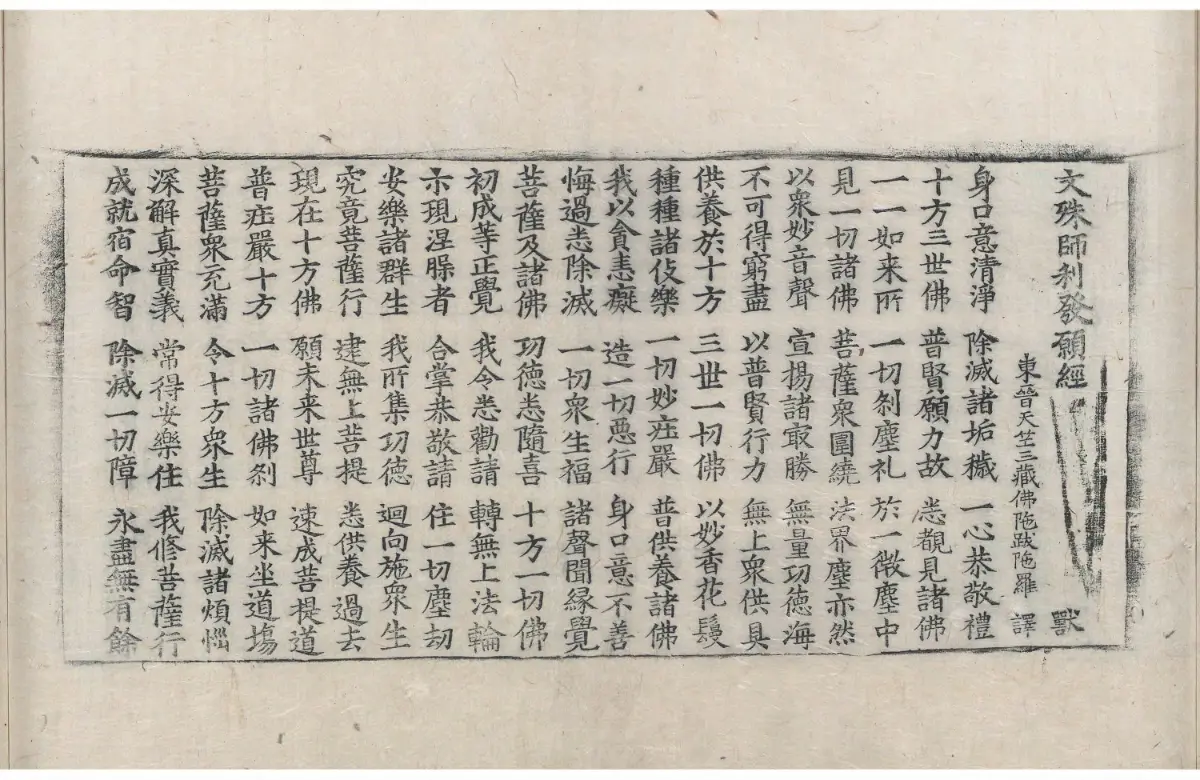 文殊師利發願經 獸
東晉天竺三藏佛陁跋陁羅 譯
身口意清淨 除滅諸垢穢 一心恭敬禮
十方三世佛 普賢願力故 悉覩見諸佛
一一如来所 一切刹塵礼 於一微塵中
見一切諸佛 菩薩衆圍繞 法界塵亦然
以衆妙音聲 宣揚諸冣勝 無量功德海
不可得窮盡 以普賢行力 無上衆供具
供養於十方 三世一切佛 以妙香花鬘
種種諸伎樂 一切妙莊嚴 普供養諸佛
我以貪恚癡 造一切惡行 身口意不善
悔過悉除滅 一切衆生福 諸聲聞緣覺
菩薩及諸佛 功德悉隨喜 十方一切佛
初成等正覺 我今悉勸請 轉無上法輪
示現涅槃者 合掌恭敬請 住一切塵劫
安樂諸群生 我所集功德 迴向施衆生
究竟菩薩行 逮無上菩提 悉供養過去
現在十方佛 願未来世尊 速成菩提道
普莊嚴十方 一切諸佛刹 如来坐道場
菩薩衆充滿 令十方衆生 除滅諸煩惱
深解真實義 常得安樂住 我修菩薩行
成就宿命智 除滅一切障 永盡無有餘